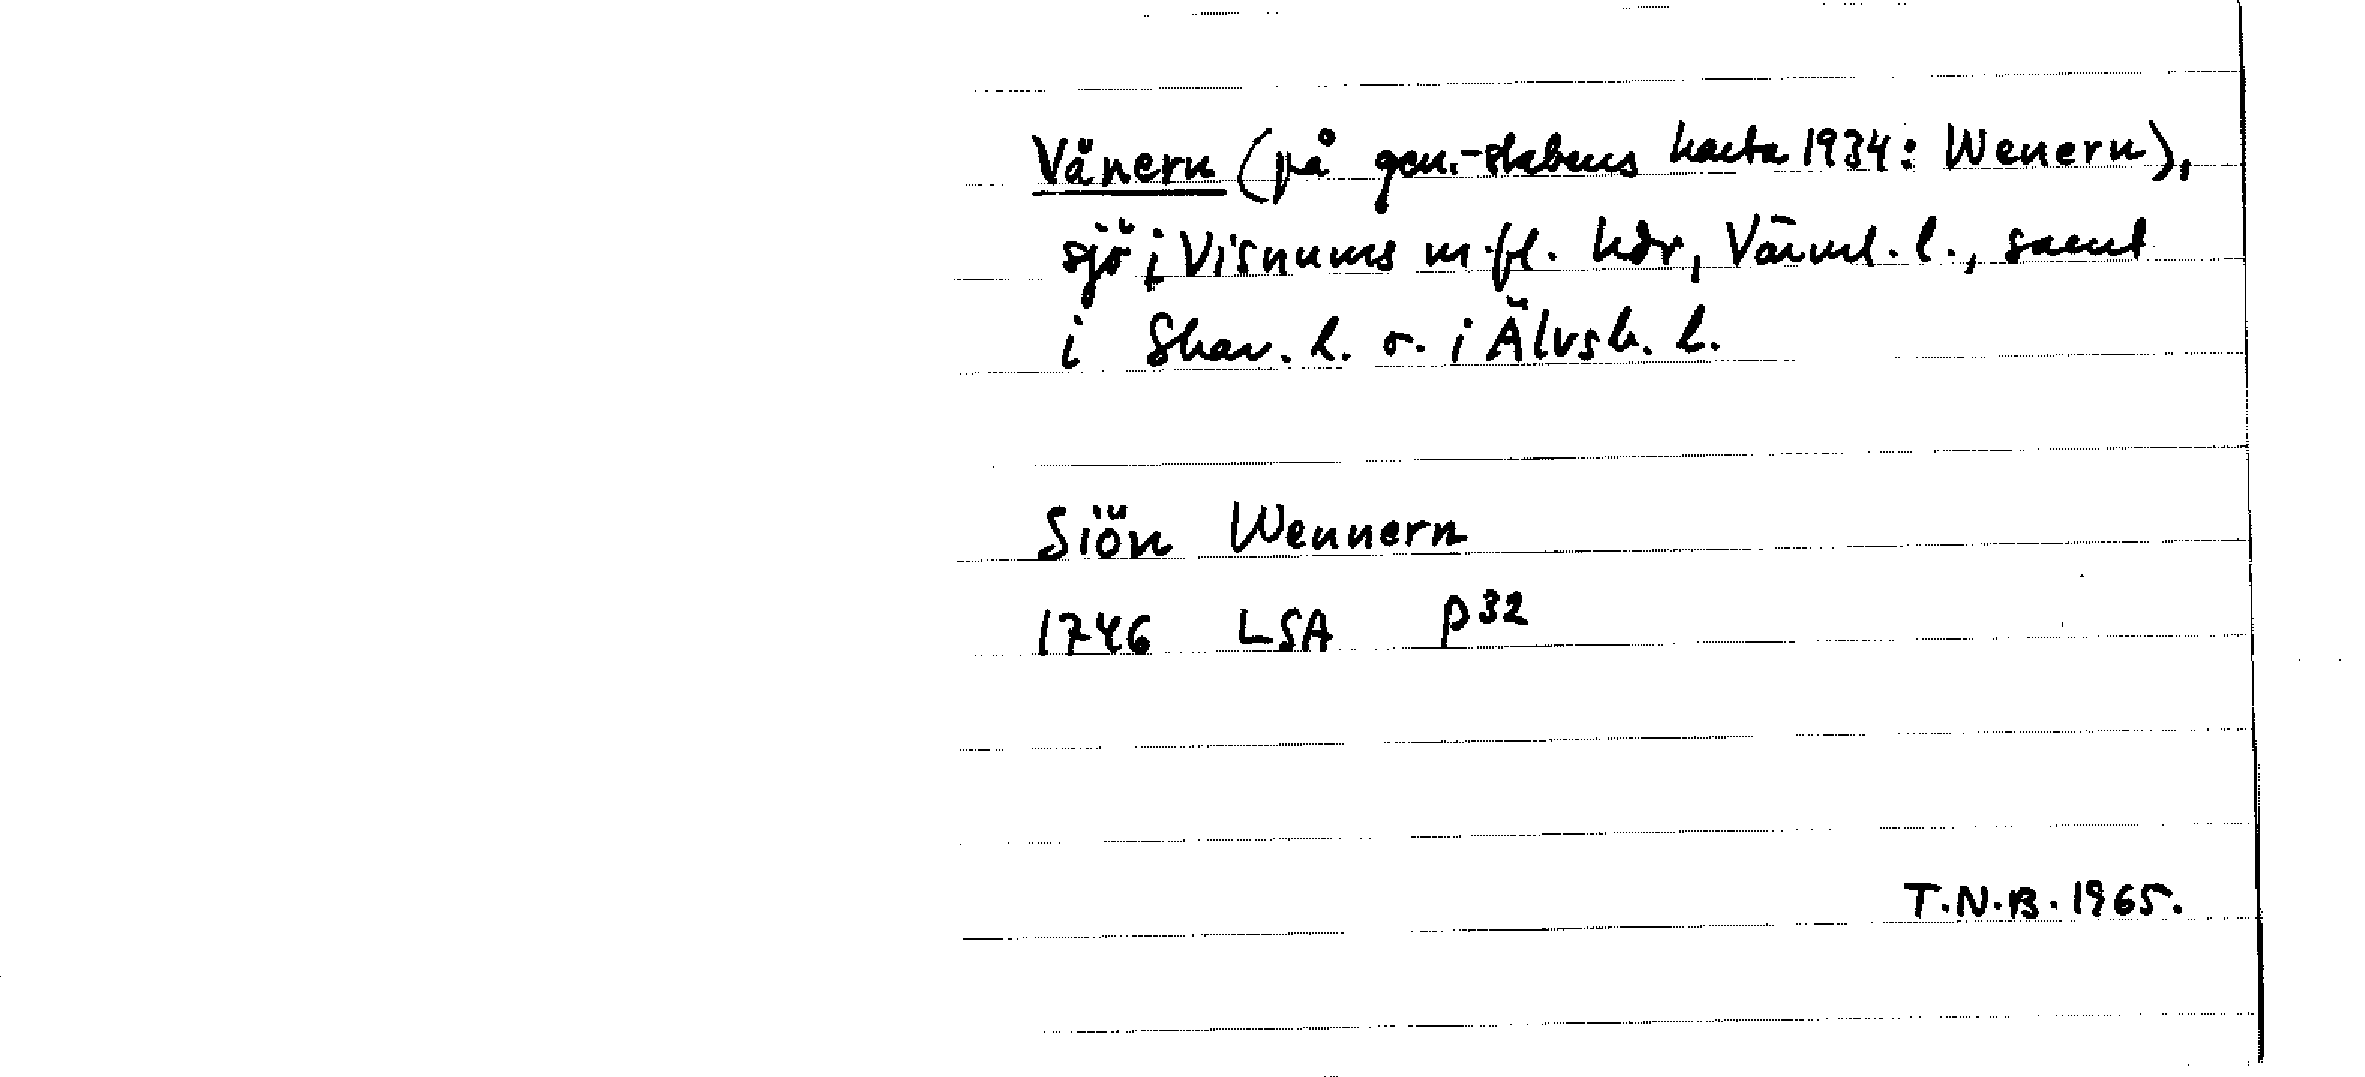 Vänern (på gen.-stabens karta 1934: Wenern),
sjö i Visnums m.fl. hdr, Värml. l., samt
i Skar. l. o. i Älvsb. l.
Siön Wennern
1746 LSA P32
T.N.B. 1965.